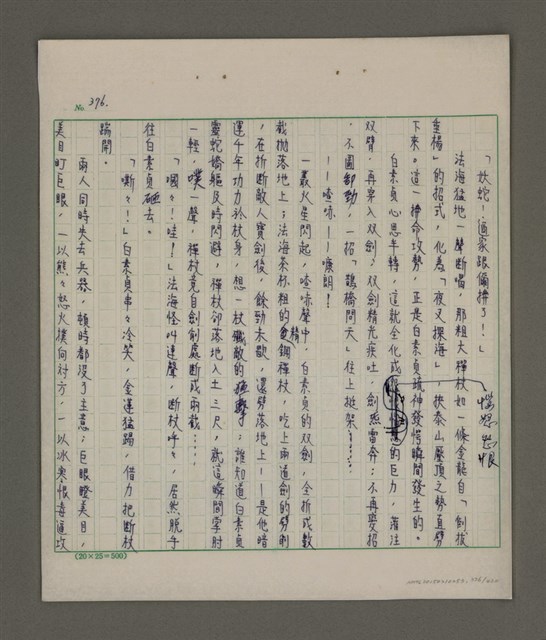 No. 376.
「妖蛇！洒家跟儞拚了！」
法海猛地一聲斷喝，那粗大禪杖如一條金龍自「倒拔
垂楊」的招式，化為「夜叉探海」挾泰山壓頂之勢直劈
下來。這一拚命攻勢，正是白素貞疏神發愕瞬間發生的。
白素貞心思半轉，這就全化成
惱怒忿恨
的巨力，灌注
双臂，再貫入双劍；双劍精光疾吐，劍然雷奔；不再耍招
，不圖卸勁，一招「鵲橋問天」往上挺架……。
——喳啼！——噹朗！
一叢火星閃起，喳啼聲中，白素貞的双劍，全折成數
截拋落地上；法海茶杯粗的精鋼禪杖，吃上兩道劍的劈削
，在折斷敵人寶劍後，餘勁未歇，還劈落地上——是他暗
運千年功力於杖身，想一杖殲敵的；誰知道白素貞
靈蛇嬌軀及時閃避，禪杖卻落地入土三尺，就這瞬間掌肘
一輕，噗一聲，禪杖竟自劍削處斷成兩截……。
「嘓々！哇！」法海怪叫連聲，斷杖呼々，居然脫手
往白素貞砸去。
「嘶々！」白素貞串々冷笑，金蓮猛踢，借力把斷杖
踢開。
兩人同時失去兵器，頓時都沒了主意；巨眼瞪美目，
美目盯巨眼，一以熊々怒火撲向対方，一以冰寒恨毒逼攻
(20×25=500)